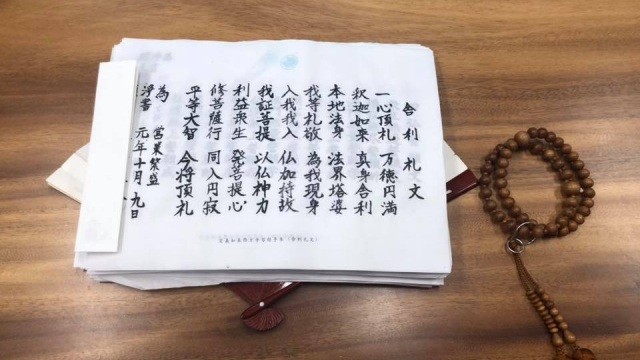 舎利礼文
一心頂礼 万徳円満
釈迦如来 真身舎利
本地法身 法界塔婆
我等礼敬 為我現身
入我我入 仏加持故
我証菩提 以仏神力
利益衆生 発菩提心
修菩薩行 同入円寂
平等大智 今将頂礼
為 営業繁盛
浄書 元年十月 九日
(舎利礼文)